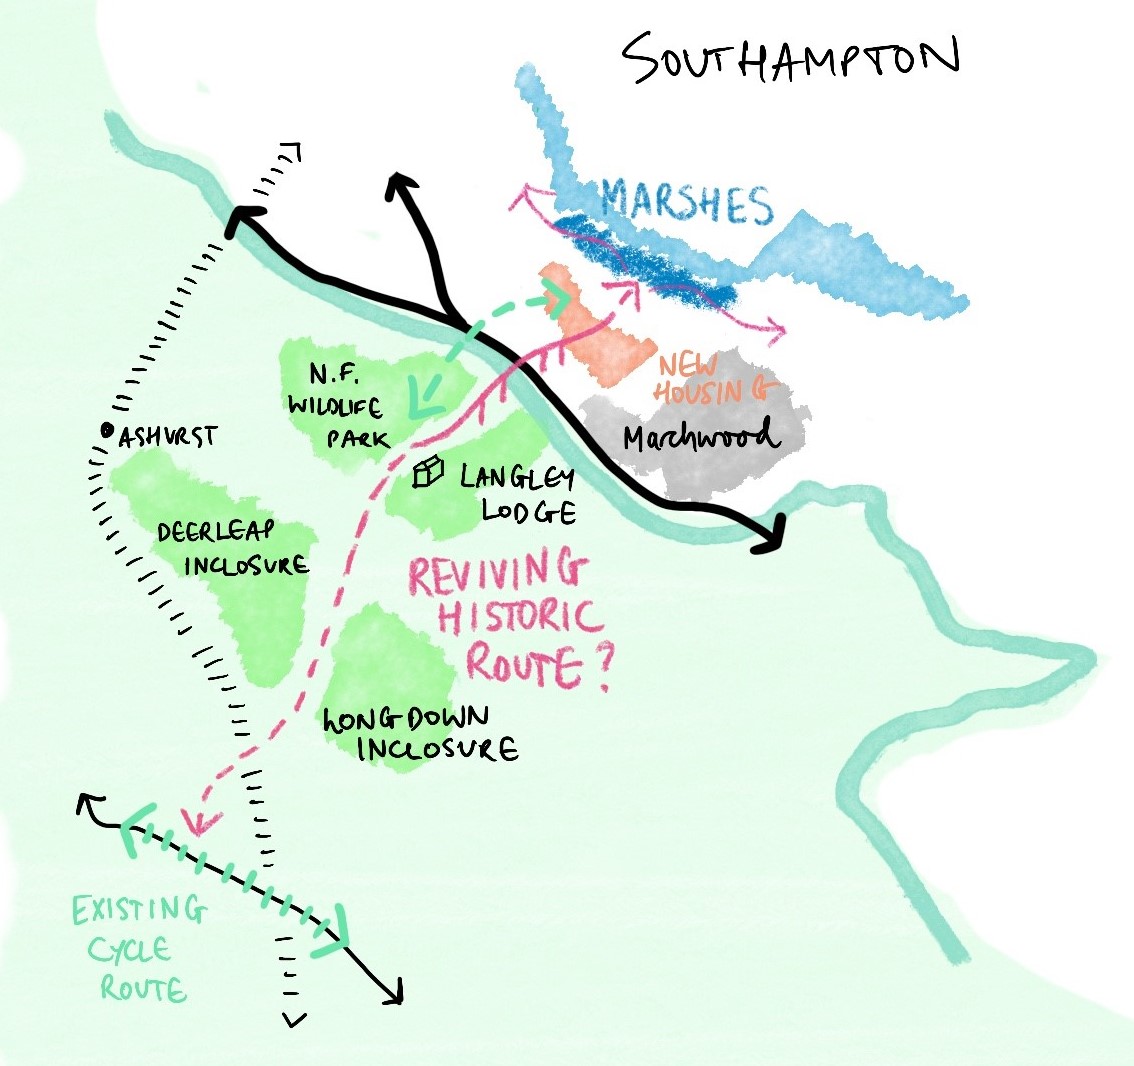 SOUTHAMPTON
MARSHES
NEW
HOUSING
Marchwood
N.F.
WILDLIFE
PARK
ASHURST
LANGLEY
LODGE
DEERLEAP
INCLOSURE
REVIVING
HISTORIC
ROUTE?
LONGDOWN
INCLOSURE
EXISTING
CYCLE
ROUTE